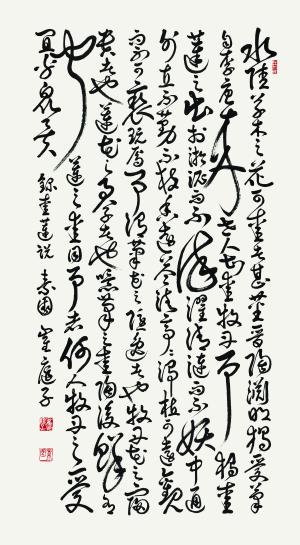 水陸草木之花可愛者甚蕃晉陶淵明獨愛菊
自李唐來世人甚愛牡丹予獨愛
蓮之出於淤泥而不染濯清漣而不妖中通
外直不蔓不枝香遠益清亭亭淨植可遠觀
而不可褻玩焉予謂菊花之隱逸者也牡丹花之富
貴者也蓮花之君子者也噫菊之愛陶後鮮有
聞蓮之愛同予者何人牡丹之愛
宜乎眾矣 錄愛蓮說 素園